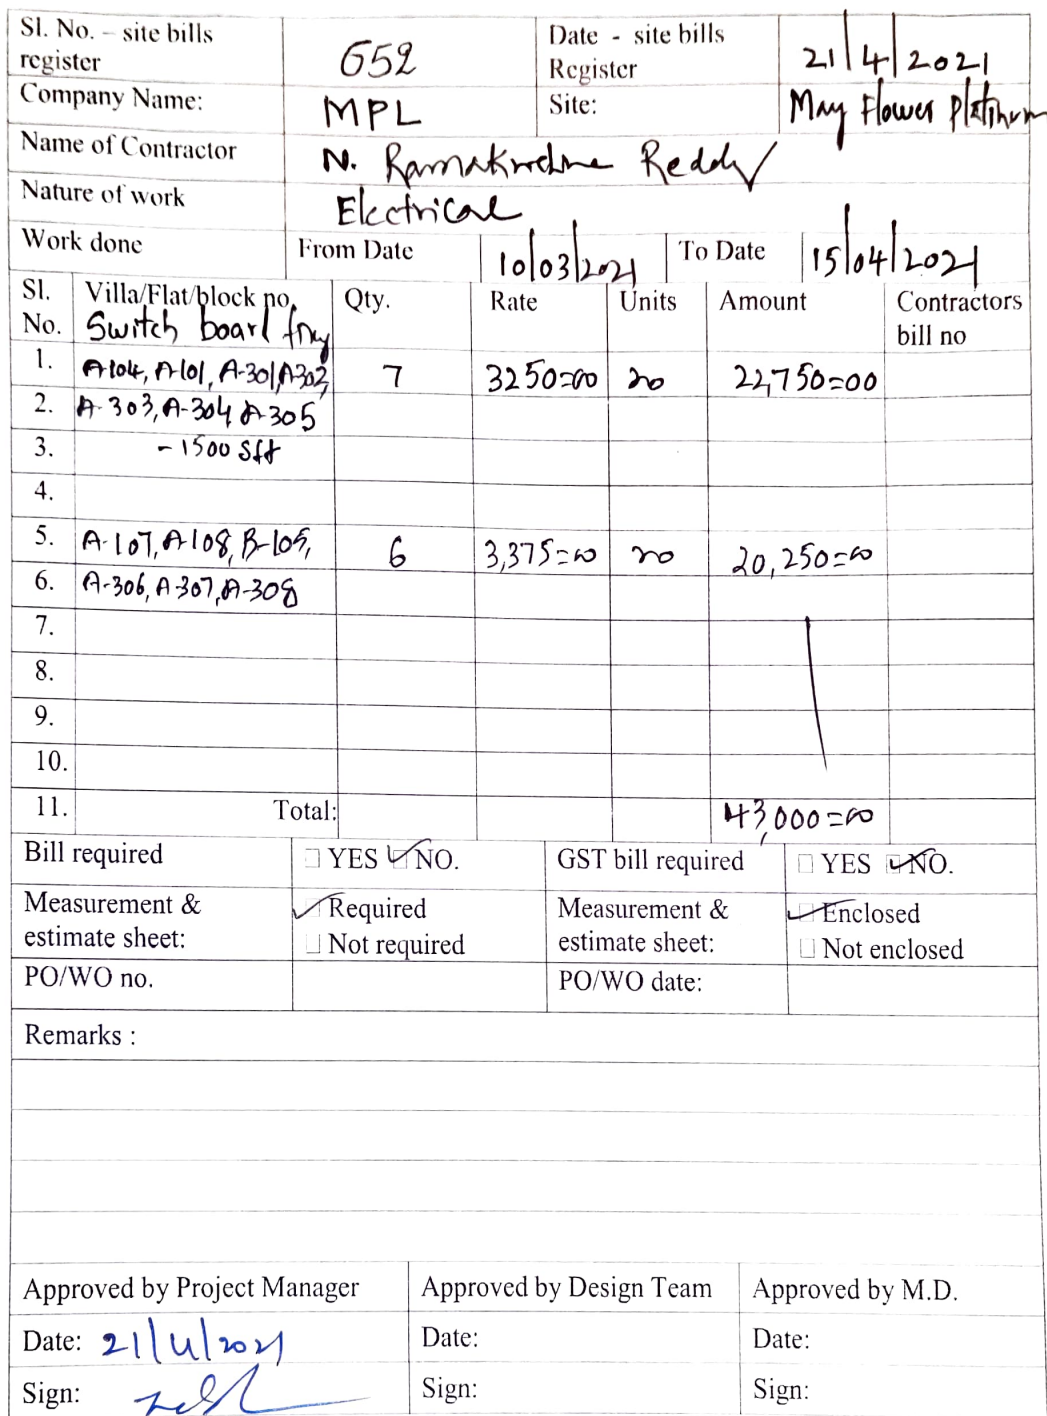 Sl. No. – site bills register 652 Date - site bills Register 21/4/2021
Company Name: MPL Site: May Flower Platinum
Name of Contractor N. Ramakrishna Reddy
Nature of work Electrical
Work done From Date 10/03/2021 To Date 15/04/2021
Sl. No. Villa/Flat/block no. Qty. Rate Units Amount Contractors bill no
Switch board
1. A-104, A-101, A-301, A-302, 7 3250=00 no 22,750=00
2. A-303, A-304, A-305
3. - 1500 Sft
4.
5. A-107, A-108, B-105, 6 3,375=00 no 20,250=00
6. A-306, A-307, A-308
7.
8.
9.
10.
11. Total: 43,000=00
Bill required YES NO. GST bill required YES NO.
Measurement & estimate sheet: Required Measurement & estimate sheet: Enclosed
Not required Not enclosed
PO/WO no. PO/WO date:
Remarks :
Approved by Project Manager Approved by Design Team Approved by M.D.
Date: 21/4/2021 Date: Date:
Sign: Sign: Sign: